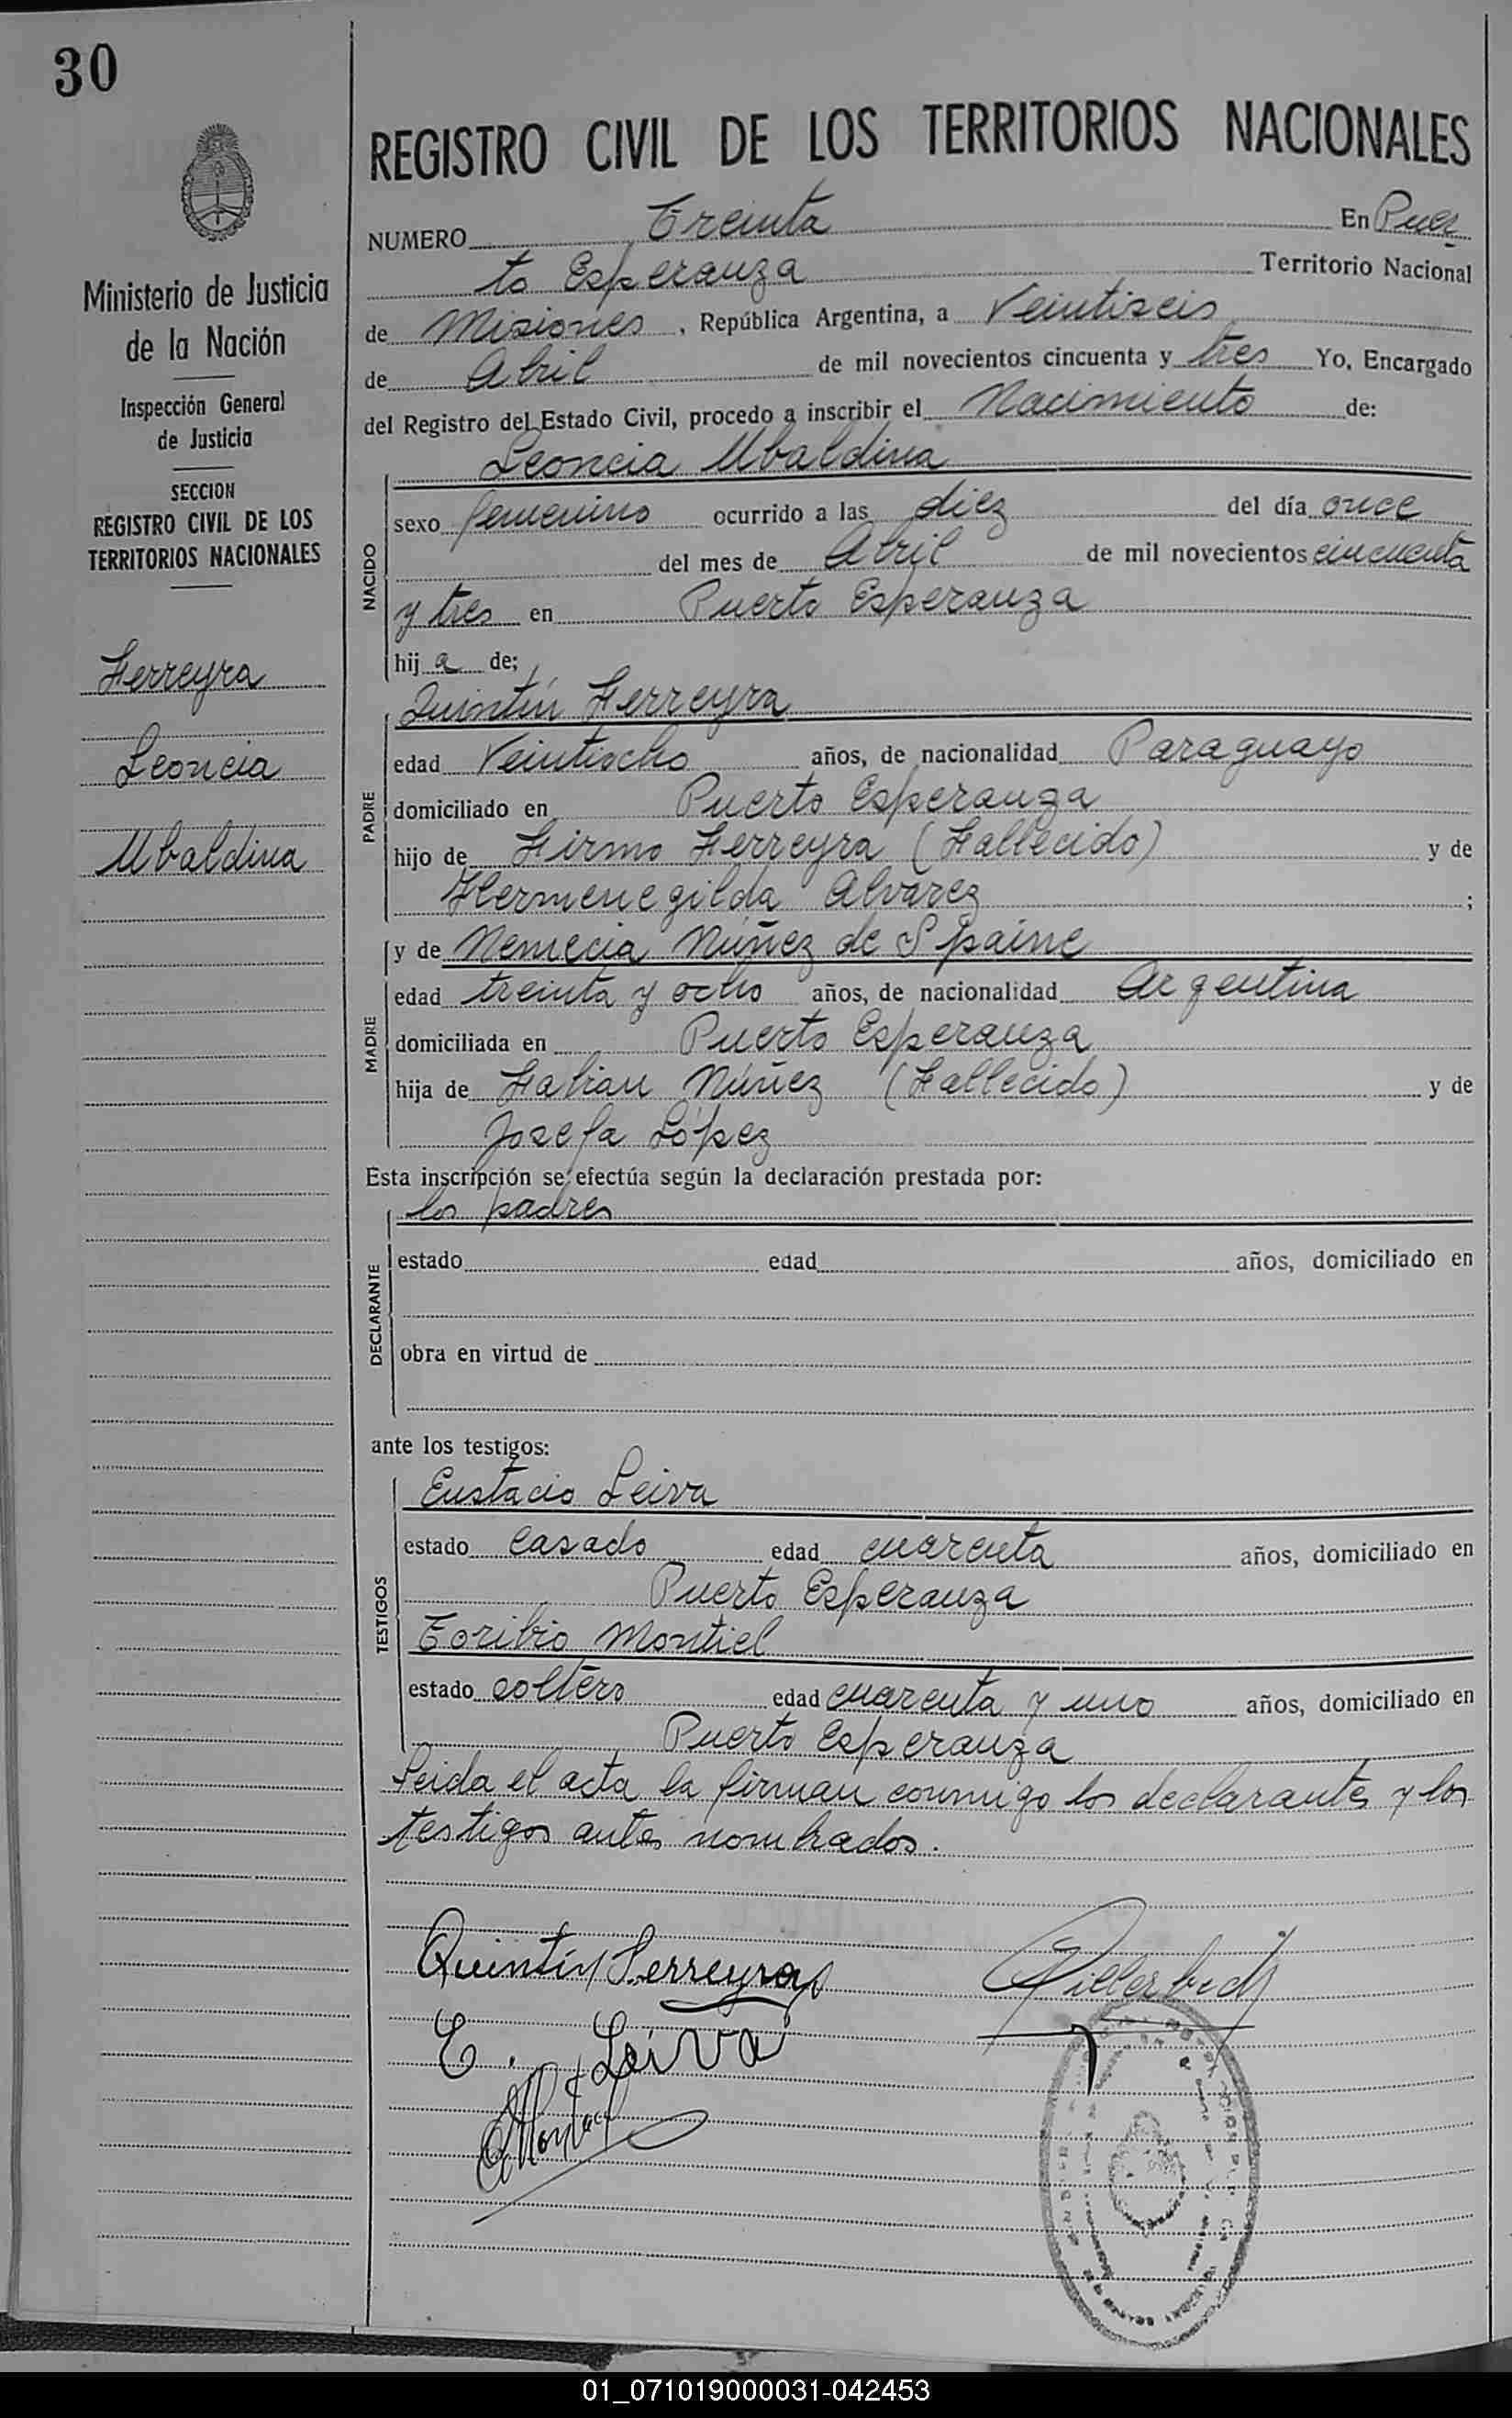 30
Ministerio de Justicia
de la Nación
Inspección General
de Justicia
SECCION
REGISTRO CIVIL DE LOS
TERRITORIOS NACIONALES
Ferreyra
Leoncia
Ubaldina
REGISTRO CIVIL DE LOS TERRITORIOS NACIONALES
NUMERO Treinta En Puer
to Esperanza Territorio Nacional
de Misiones, República Argentina, a Veintiseis
de Abril de mil novecientos cincuenta y tres Yo, Encargado
del Registro del Estado Civil, procedo a inscribir el Nacimiento de:
Leoncia Ubaldina
NACIDO
sexo femenino ocurrido a las diez del día once
del mes de Abril de mil novecientos cincuenta
y tres en Puerto Esperanza
hij a de;
Quintín Ferreyra
PADRE
edad Veintiocho años, de nacionalidad Paraguayo
domiciliado en Puerto Esperanza
hijo de Firmo Ferreyra (Fallecido) y de
Hermenegilda Alvarez ;
y de Nemecia Núñez de Spaine
MADRE
edad treinta y ocho años, de nacionalidad Argentina
domiciliada en Puerto Esperanza
hija de Fabian Núñez (Fallecido) y de
Josefa López
Esta inscripción se efectúa según la declaración prestada por:
los padres
DECLARANTE
estado edad años, domiciliado en
obra en virtud de
ante los testigos:
TESTIGOS
Eustacio Leiva
estado casado edad cuarenta años, domiciliado en
Puerto Esperanza
Toribio Montiel
estado soltero edad cuarenta y uno años, domiciliado en
Puerto Esperanza
Leida el acta la firman conmigo los declarantes y los
testigos antes nombrados.
Quintín Ferreyra
E. Leiva
01_071019000031-042453